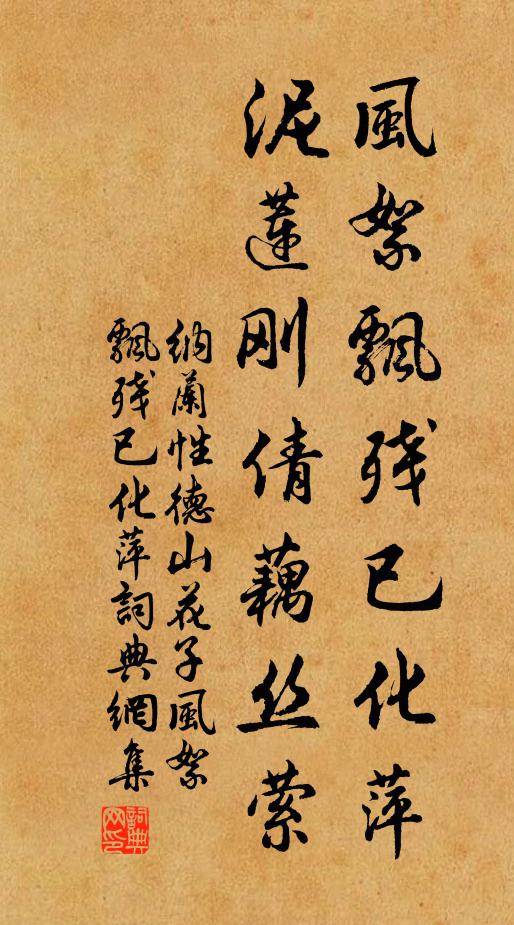 風絮飄殘已化萍
泥蓮刚倩藕丝萦
納蘭性德山花子風絮
飄殘已化萍詞典網集
詞典
网印